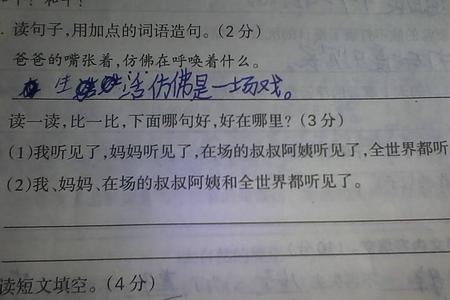 读句子,用加点的词语造句。(2分)
爸爸的嘴张着,仿佛在呼唤着什么。
生活仿佛是一场戏。
读一读,比一比,下面哪句好,好在哪里?(3分)
(1)我听见了,妈妈听见了,在场的叔叔阿姨听见了,全世界都听
(2)我、妈妈、在场的叔叔阿姨和全世界都听见了。
读短文填空。(4分)